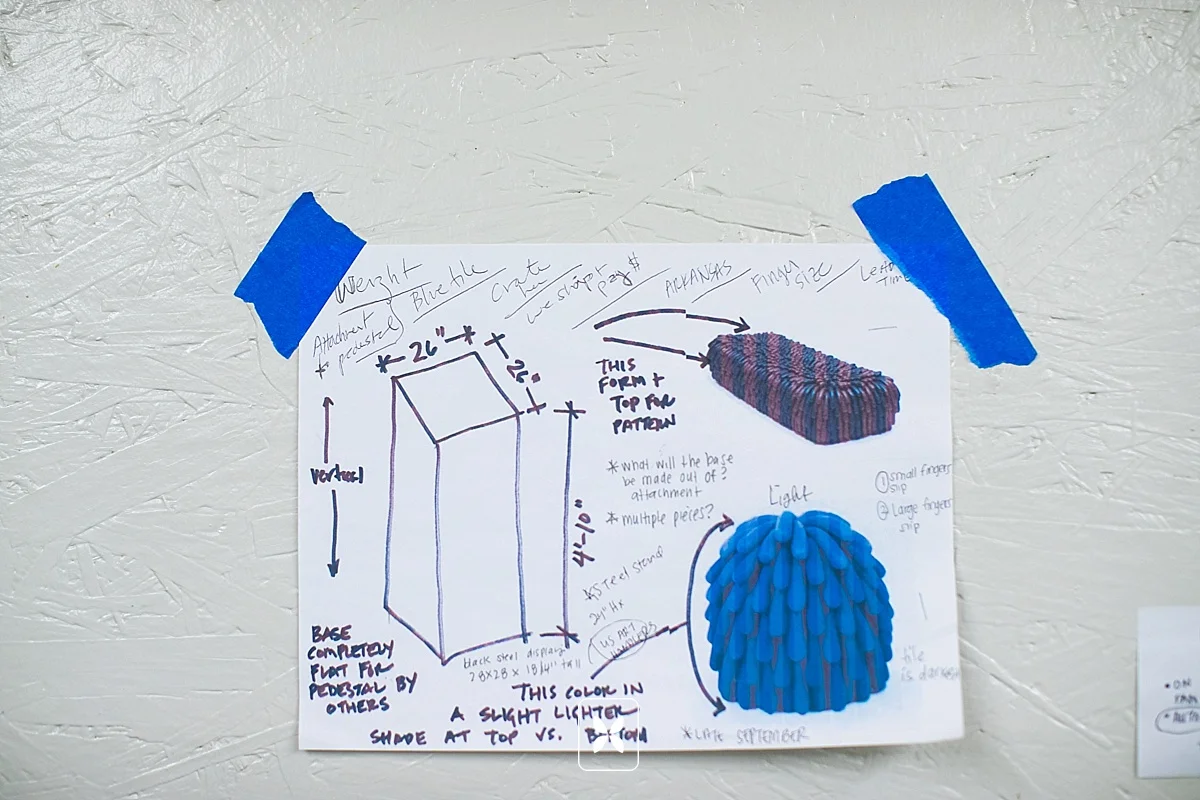 Weight
Attachment
* pedestal
Blue tile
Crate
we ship?
pay $
ARKANSAS
Finger
size
Lead
Time
26"
26"
vertical
4'-10"
THIS
FORM +
TOP FOR
PATTERN
* what will the base
be made out of?
attachment
* multiple pieces?
Light
① small fingers
slip
② Large fingers
slip
* Steel stand
24" H x
US ART
HANDLERS
black steel display
28x28 x 18 1/4" tall
BASE
COMPLETELY
FLAT FOR
PEDESTAL BY
OTHERS
THIS COLOR IN
A SLIGHT LIGHTER
SHADE AT TOP VS. BOTTOM
* LATE SEPTEMBER
tile
is darker
• ON